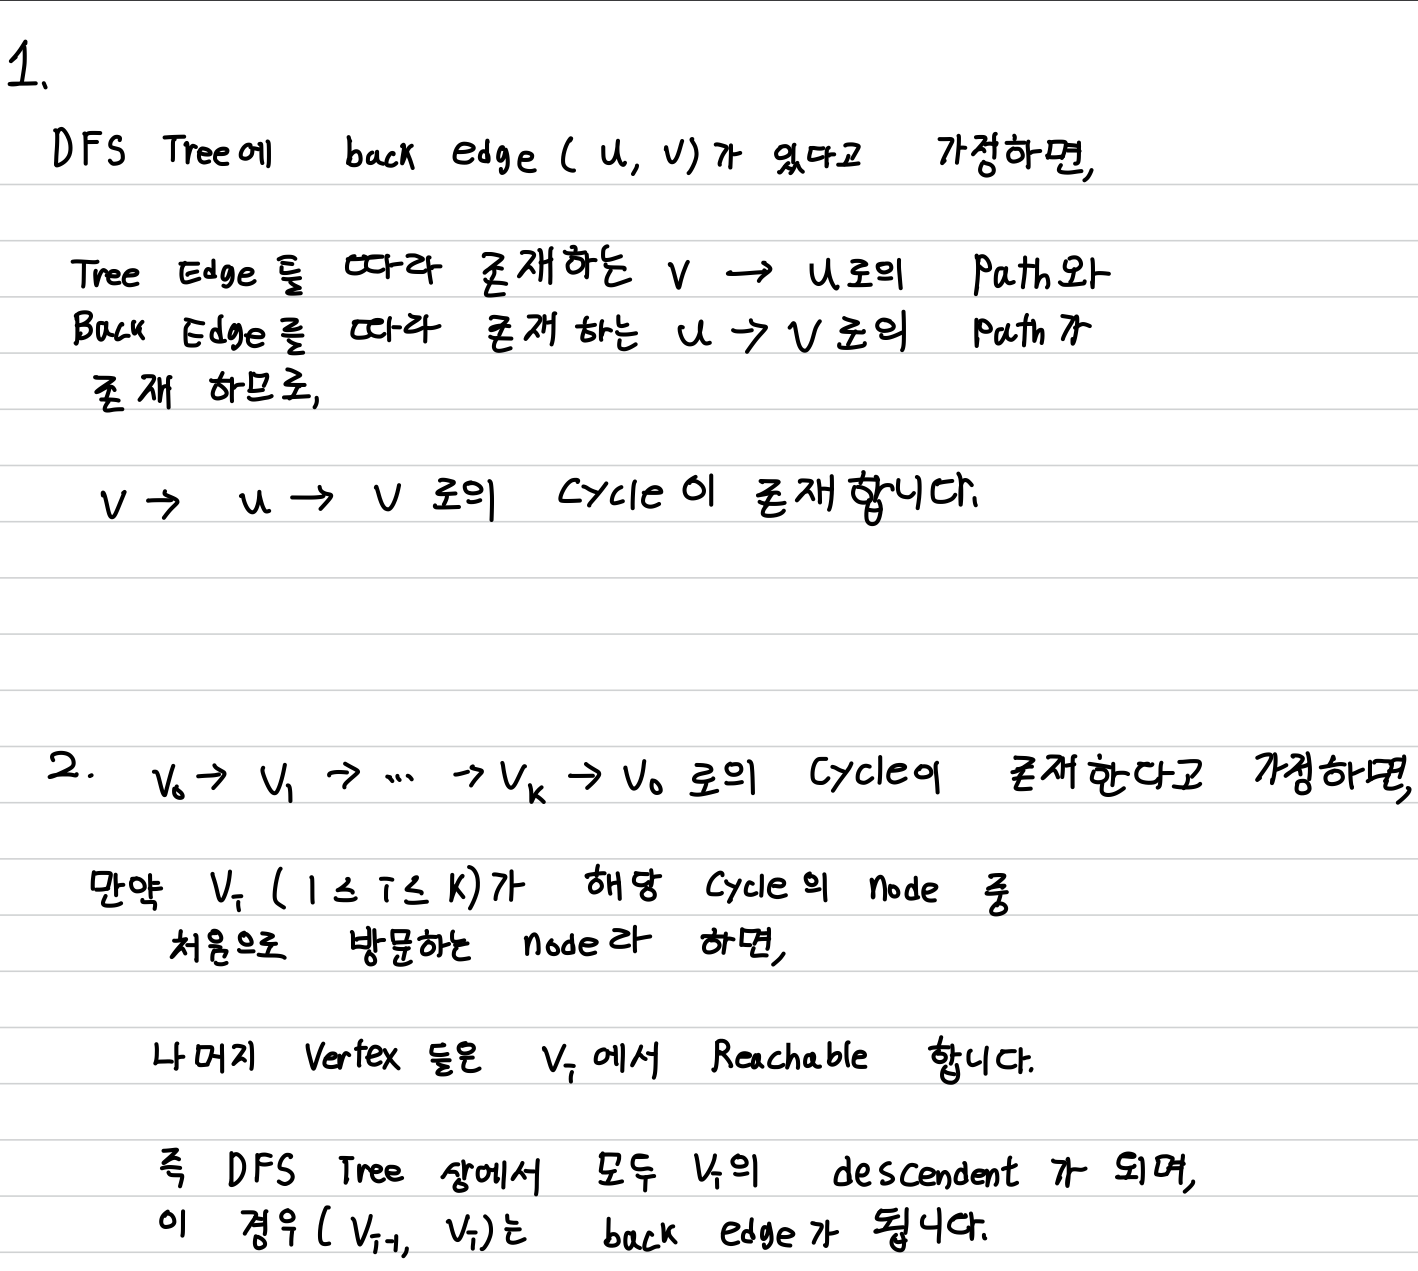 1.
DFS Tree에 back edge (u, v)가 있다고 가정하면,
Tree Edge들 따라 존재하는 v → u로의 Path와
Back Edge를 따라 존재하는 u → v로의 Path가
존재 하므로,
v → u → v 로의 Cycle이 존재합니다.
2. v₀ → v₁ → ... → vₖ → v₀ 로의 Cycle이 존재한다고 가정하면,
만약 vᵢ (1 ≤ i ≤ k)가 해당 Cycle의 node 중
처음으로 방문하는 node라 하면,
나머지 Vertex 들은 vᵢ에서 Reachable 합니다.
즉 DFS Tree 상에서 모두 vᵢ의 descendent가 되며,
이 경우 (vᵢ₋₁, vᵢ)는 back edge가 됩니다.